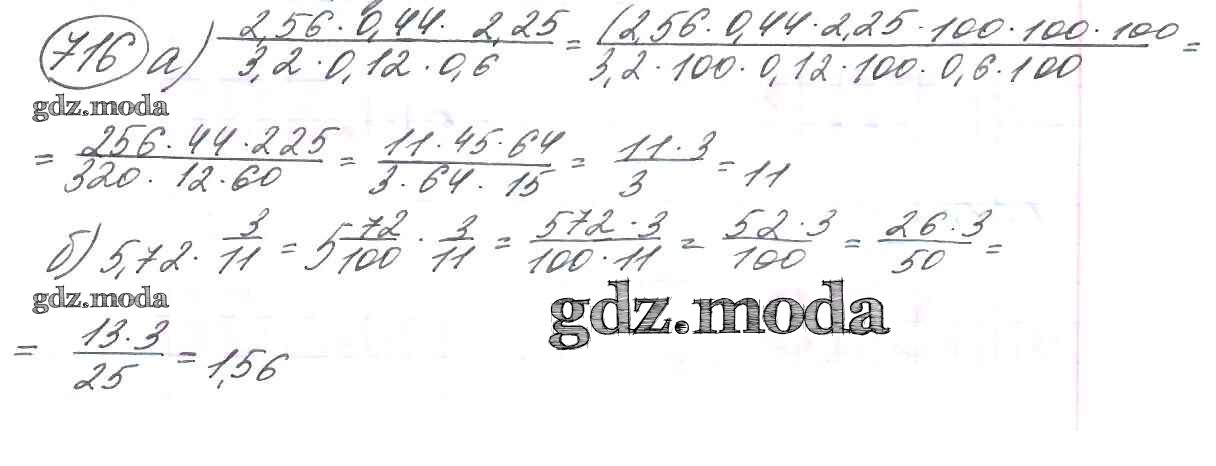 716 а) 2,56 · 0,44 · 2,25 / 3,2 · 0,12 · 0,6 = (2,56 · 0,44 · 2,25 · 100 · 100 · 100 / 3,2 · 100 · 0,12 · 100 · 0,6 · 100 =
gdz.moda
= 256 · 44 · 225 / 320 · 12 · 60 = 11 · 45 · 64 / 3 · 64 · 15 = 11 · 3 / 3 = 11
б) 5,72 · 3/11 = 5 72/100 · 3/11 = 572 · 3 / 100 · 11 = 52 · 3 / 100 = 26 · 3 / 50 =
gdz.moda
gdz.moda
= 13 · 3 / 25 = 1,56